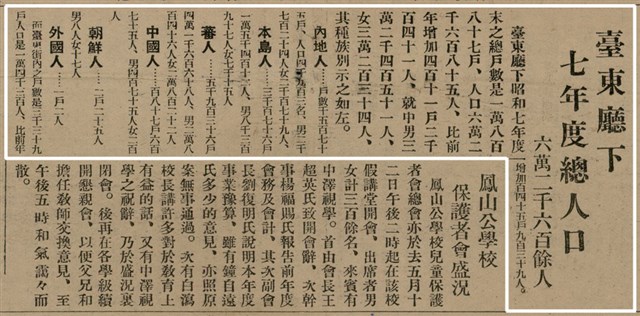 臺東廳下
七年度總人口
六萬二千六百餘人
增加百四十五戶九百三十九人。
臺東廳下昭和七年度
末之總戶數是一萬八百
八十七戶、人口六萬二
千六百八十五人、比前
年增加四百十一戶二千
百四十一人、就中男三
萬二千四百五十一人、
女三萬二百三十四人、
其種族別示之如左。
內地人…戶數千五百七十
五戶、人口四千九百三名、男二千
七百二十四人女二千百七十九人、
本島人……三千百七十六戶
一萬五千四百十二人、男八千二百
九十七人女七千百十五人
蕃人……五千九百三十六戶
四萬一千六百六十八人、男二萬八
百四十六人女二萬八百二十二人
中國人……百八十七戶六百
七十五人、男四百七十五人女二百
人
朝鮮人……二戶二十五人
男八人女十七人
外國人……一戶二人
而臺東街內之戶數是二千三十九
戶人口是一萬四千二百人、比前年
鳳山公學校
保護者會盛況
鳳山公學校兒童保護
者會總會亦於去五月十
二日午後二時起在該校
假講堂開會、出席者男
女計三百餘名、來賓有
中澤視學。首由會長王
超英氏致開會辭、次幹
事楊福賜氏報告前年度
會務及會計、其次副會
長劉復明氏說明本年度
事業豫算、雖有鐘自遠
氏多少的意見、亦照原
案無事通過。次有白瀉
校長講許多對於教育上
有益的話、又有中澤視
學之祝辭、乃於盛況裏
閉會。後再在各學級續
開懇親會、以便父兄和
擔任敎師交換意見、至
午後五時和氣靄々而
散。